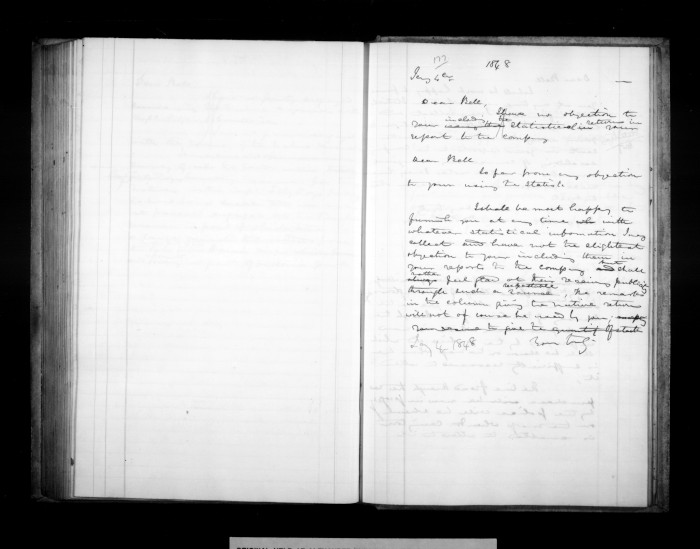 177
1848
Jany 4th
Dear Bell,
I have no objection to
your including the returns in
using the Statistical in your
report to the Company
Dear Bell
So far from any objection
to your using the Statisl.
I shall be most happy to
furnish you at any time with
whatever statistical information I may
collect and have not the slightest
objection to your including them in
your reports to the Company but
and shall
rather
always feel glad at their receiving publicity
respectable
through such a channel; the remarks
in the column giving the native return
will not of course be used by you,
your to give the quantity of
Jy 4 1848 Yours truly